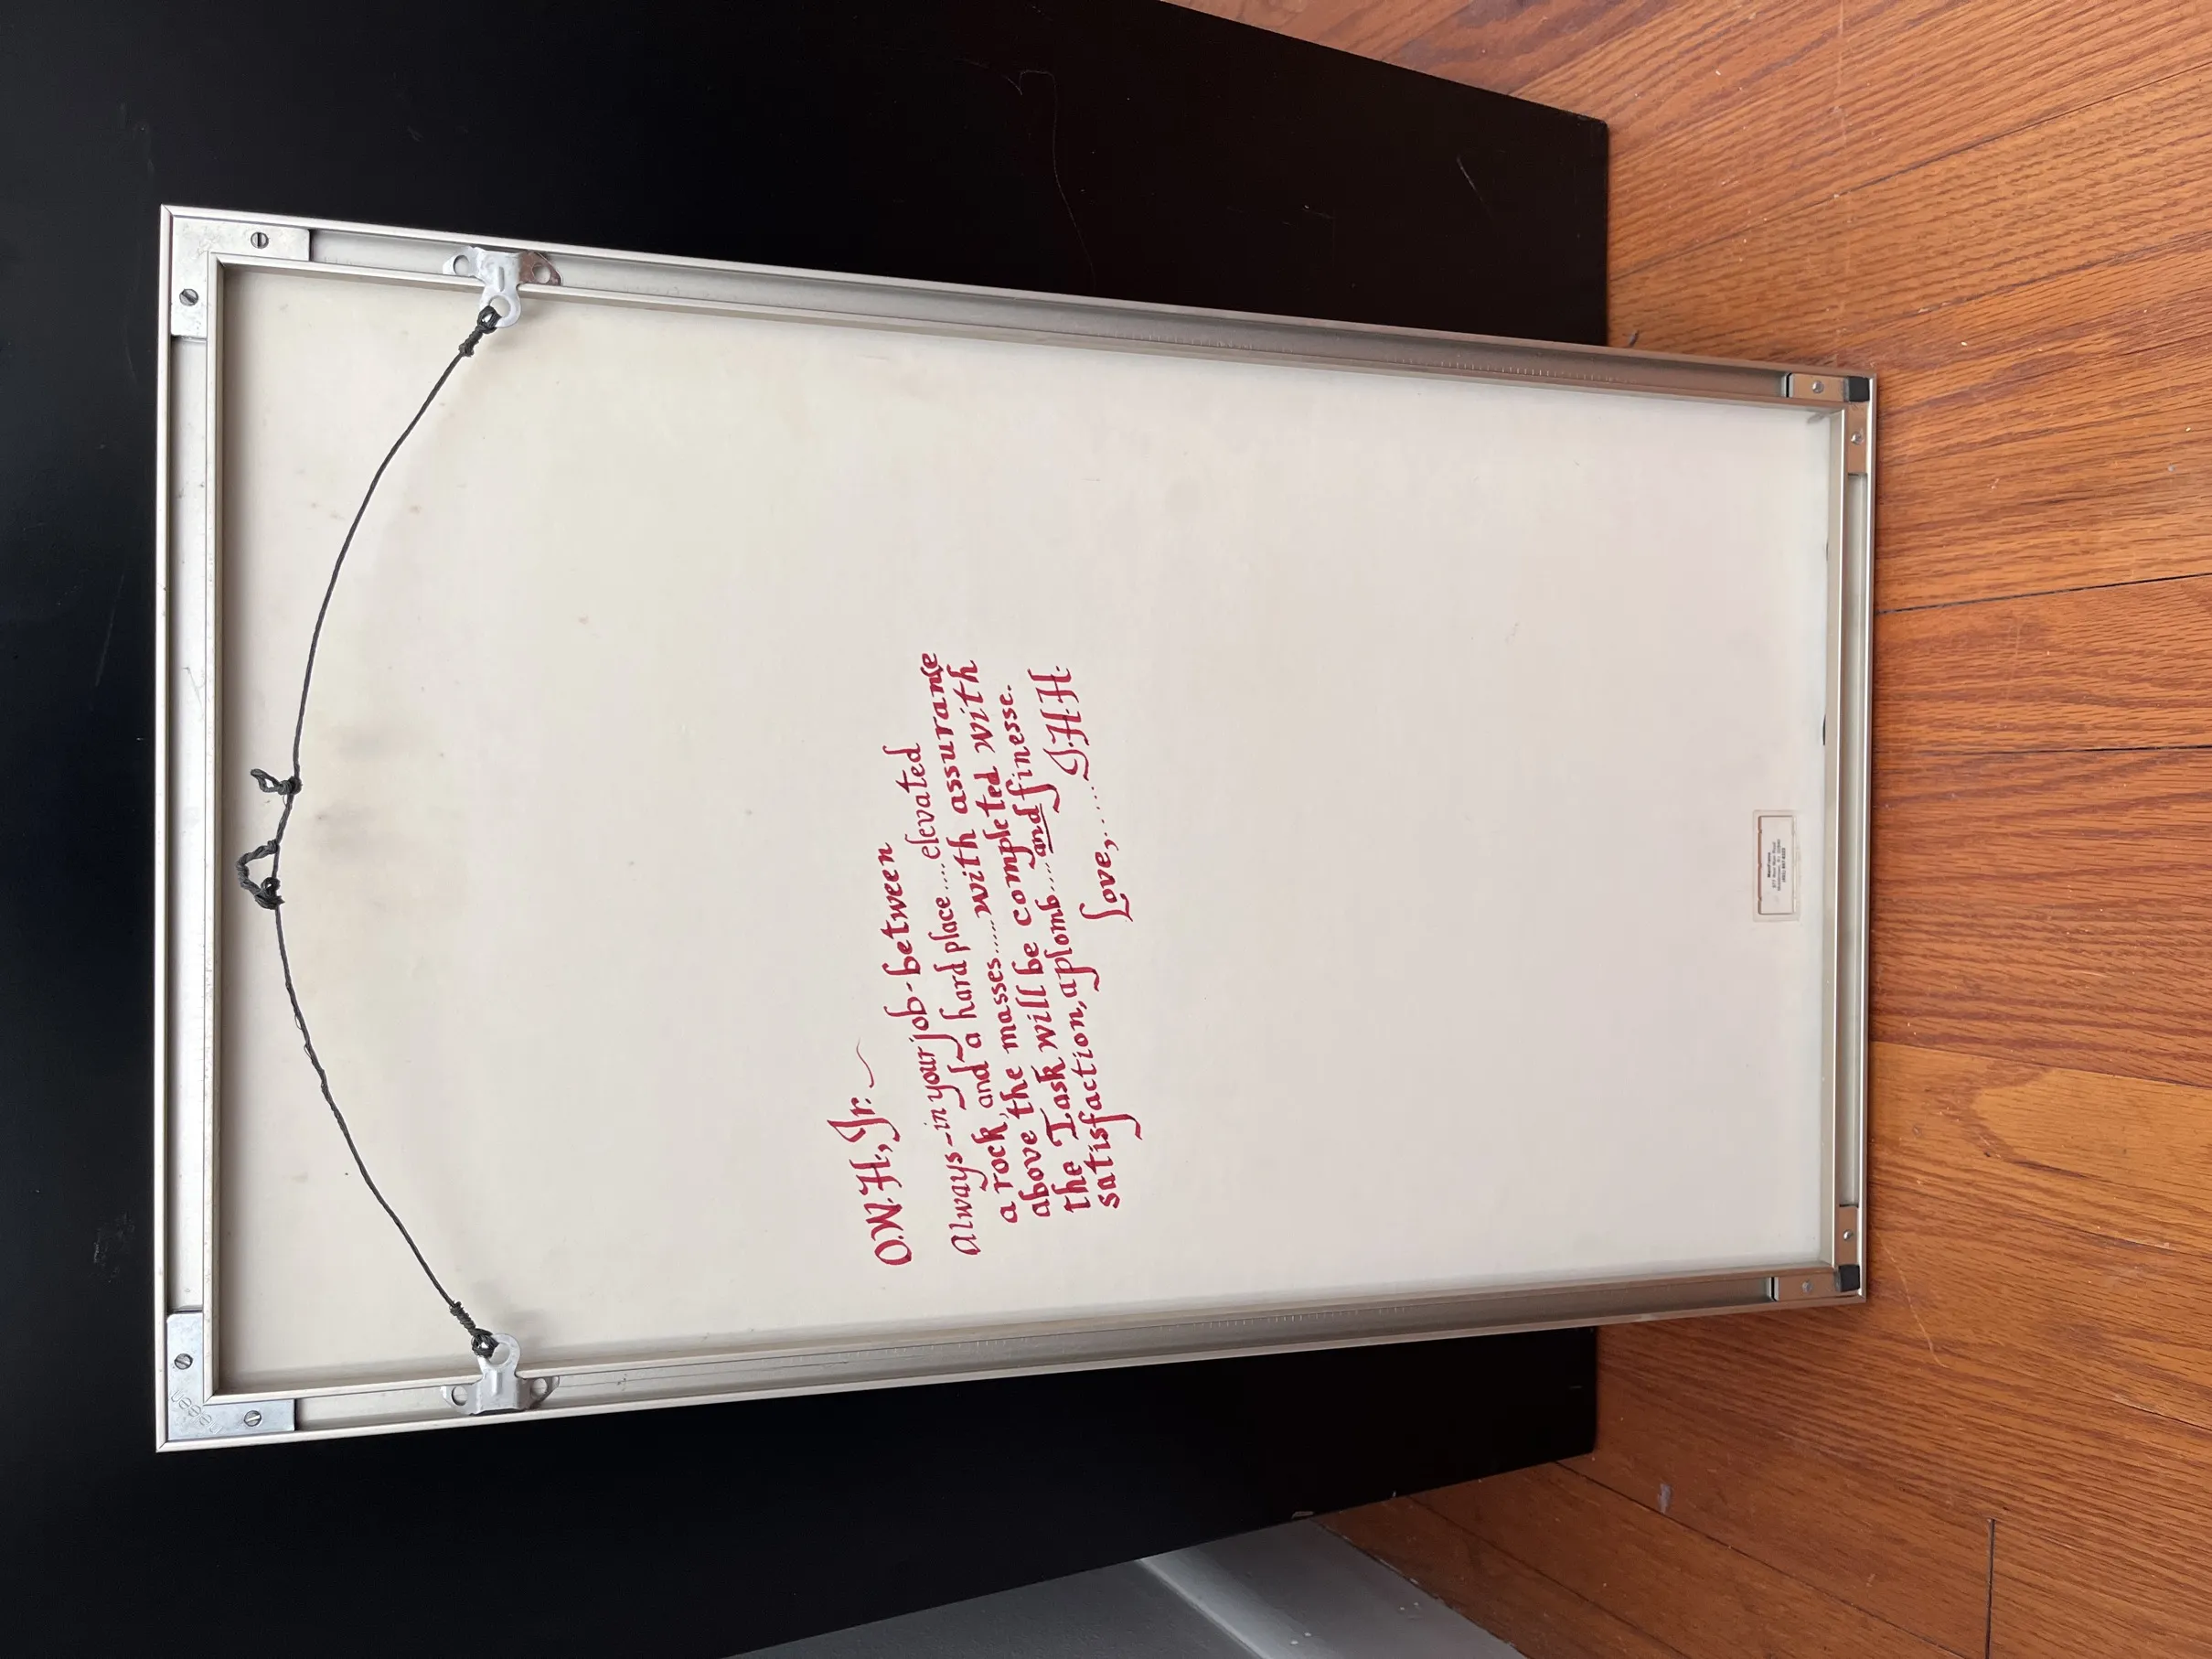 O.W.H., Jr. ~
Always - in your job - between
a rock, and a hard place.....elevated
above the masses......with assurance
the Task will be completed with
satisfaction, aplomb.....and finesse.
Love,......J.H.H.